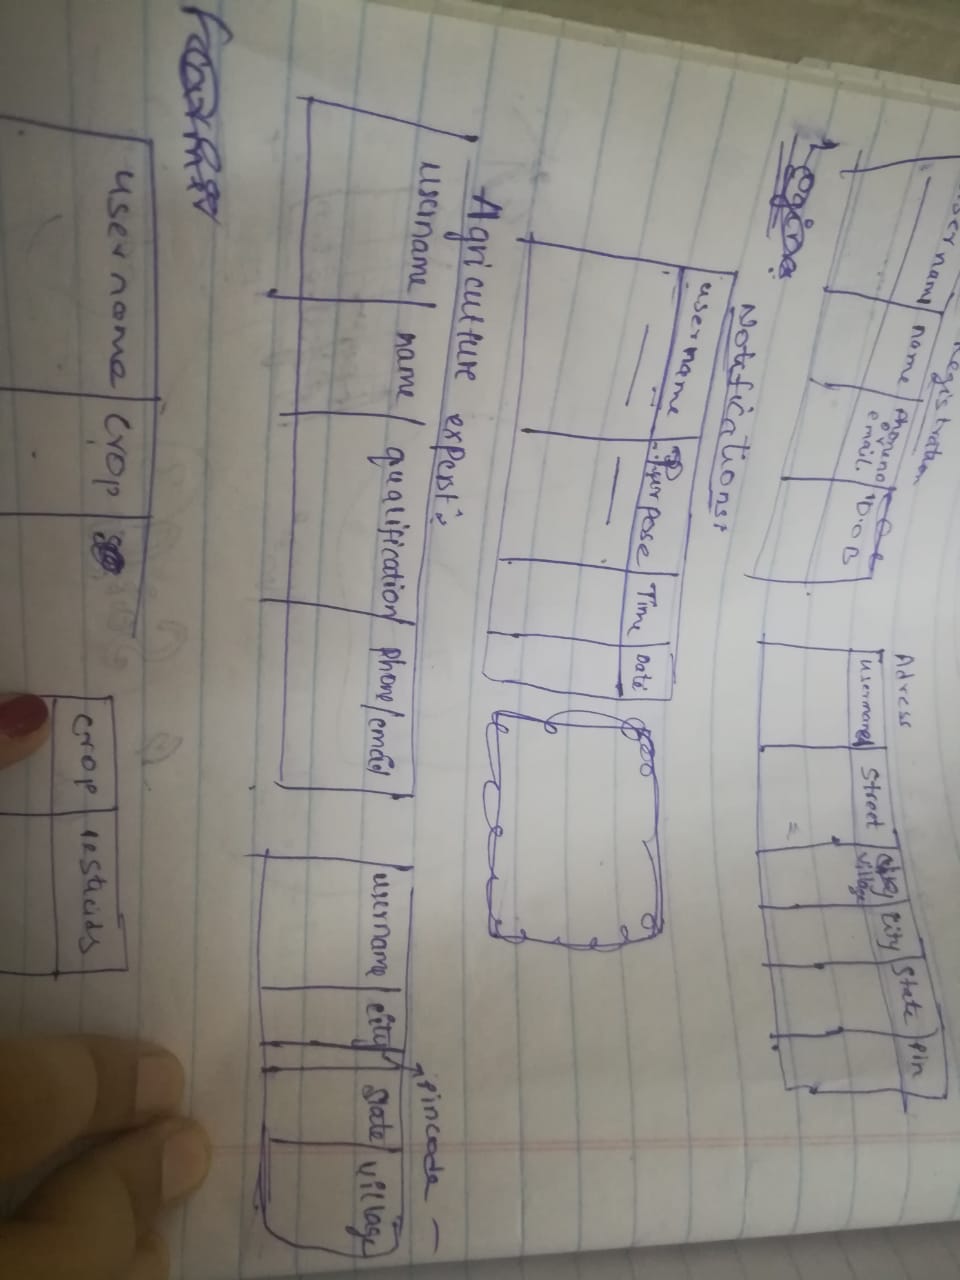 Registration
username name phoneno or email D.O.B
Adress
username street village city state pin
Logins
Notifications:
username purpose Time Date
Agriculture expert:
username name qualification phone/email
pincode
username city state village
username crop
crop pesticids